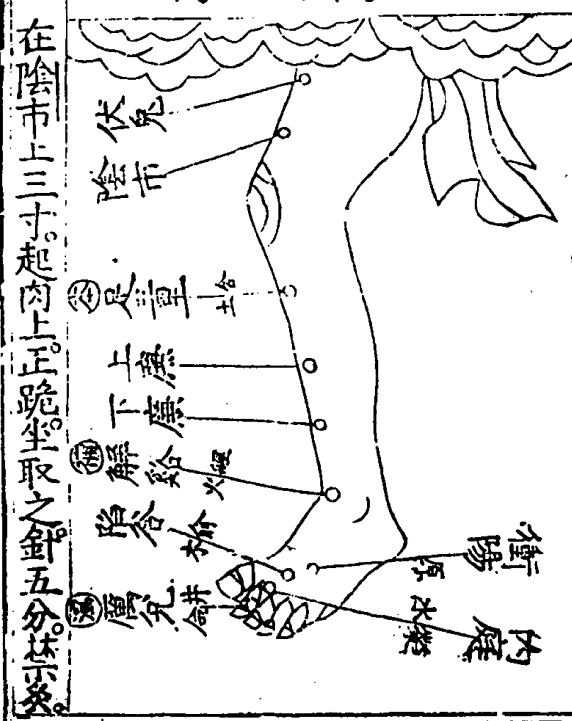 在陰市上三寸。起肉上。正跪坐取之。針五分。禁灸。
伏兔
陰市
合 足三里 土合
上廉
下廉
解谿 火經
陷谷 木俞
厲兌 金井
衝陽 原
內庭 水滎